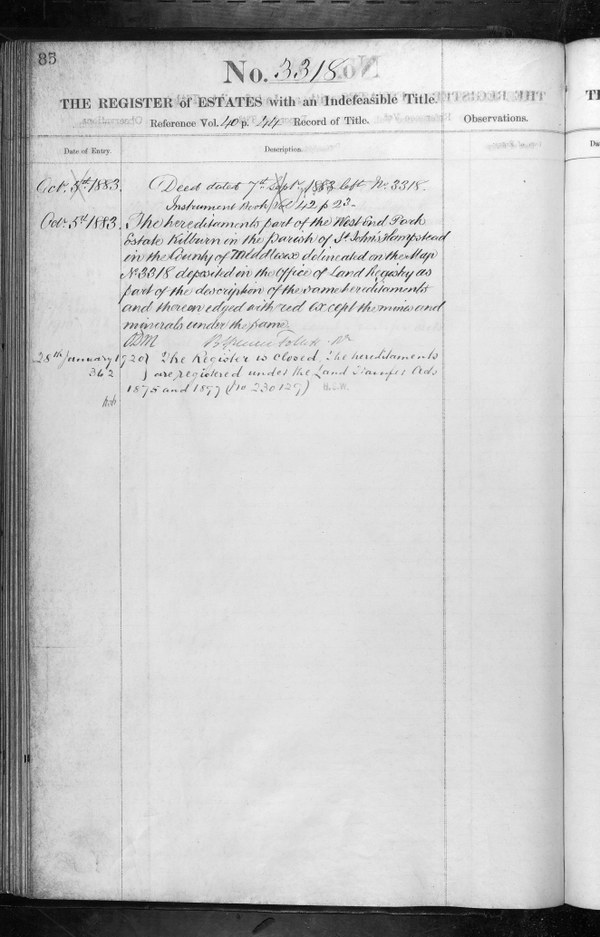 85
No. 3318
THE REGISTER of ESTATES with an Indefeasible Title.
Reference Vol. 40 p. 44 Record of Title.
Observations.
Date of Entry.
Description.
Oct. 5th 1883. Deed dated 7th Septr. 1883 left No. 3318.
Instrument Book Vol 42 p 23-
Octr. 5th 1883. The hereditaments part of the West End Park
Estate Kilburn in the Parish of St. John's Hampstead
in the County of Middlesex delineated on the Map
No. 3318 deposited in the Office of Land Registry as
part of the description of the same hereditaments
and thereon edged with red except the mines and
minerals under the same
28th January 1920 The Register is closed. The hereditaments
362 are registered under the Land Transfer Acts
1875 and 1897 (No 230129) H.S.W.